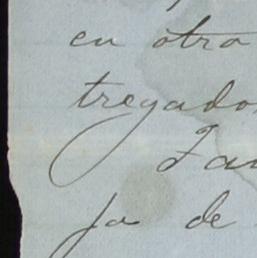 en otro
tregado
ja de